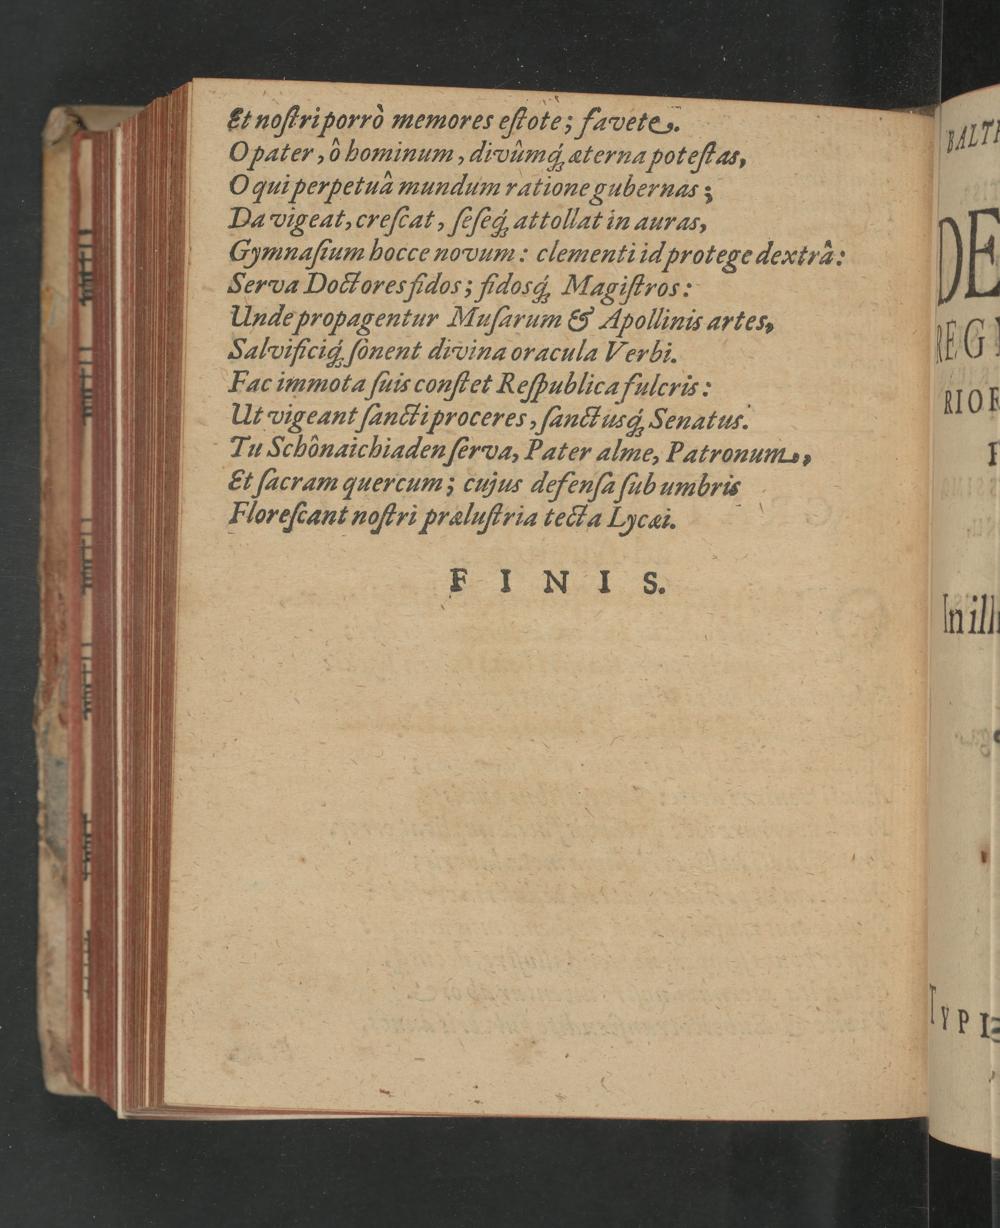 Et noſtri porrò memores eſtote; favete.
O pater, ô hominum, divûmq́ꝫ æterna poteſtas,
O qui perpetuâ mundum ratione gubernas;
Da vigeat, creſcat, ſeſeq́ꝫ attollat in auras,
Gymnaſium hocce novum: clementi id protege dextrâ:
Serva Doctores fidos; fidosq́ꝫ Magiſtros:
Unde propagentur Muſarum & Apollinis artes,
Salvificiq́ꝫ ſonent divina oracula Verbi.
Fac immota ſuis conſtet Reſpublica fulcris:
Ut vigeant ſancti proceres, ſanctusq́ꝫ Senatus.
Tu Schônaichiaden ſerva, Pater alme, Patronum,
Et ſacram quercum; cujus defenſa ſub umbris
Floreſcant noſtri præluſtria tecta Lycæi.
F I N I S.
BALT
DE
REG
RIOR
In ill
TYPI